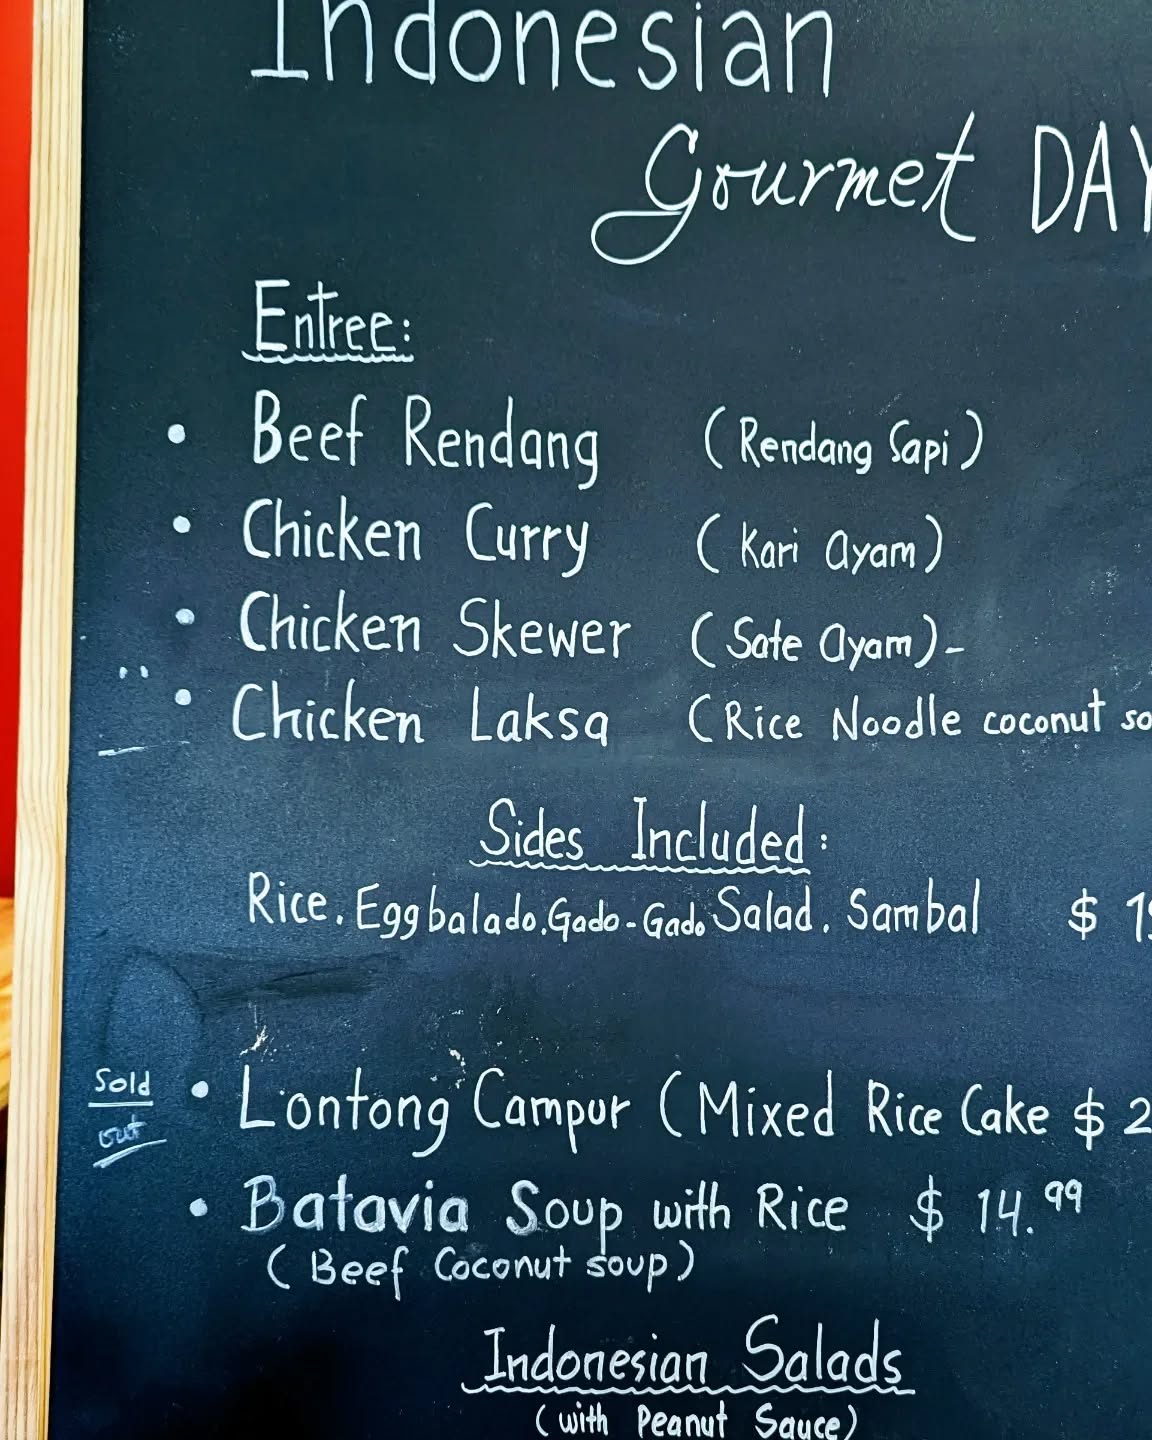 Indonesian
Gourmet DAY
Entree:
• Beef Rendang (Rendang Sapi)
• Chicken Curry (Kari Ayam)
• Chicken Skewer (Sate Ayam)-
• Chicken Laksa (Rice Noodle coconut so
Sides Included:
Rice. Egg balado. Gado-Gado Salad. Sambal $ 19
Sold out
• Lontong Campur (Mixed Rice Cake $ 2
• Batavia Soup with Rice $ 14.99
(Beef Coconut soup)
Indonesian Salads
(with Peanut Sauce)